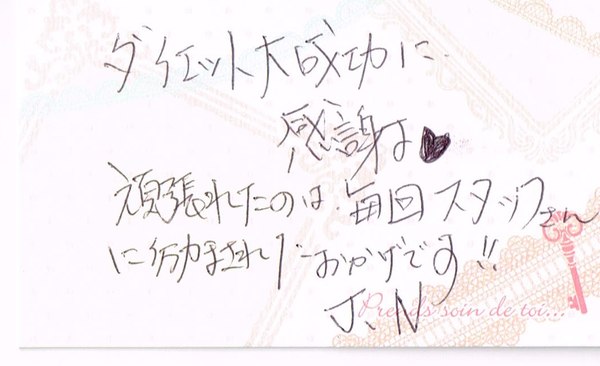 ダイエット大成功に
感謝よ♥
頑張れたのは、毎回スタッフさん
に励まされたおかげです!!
J.N
Prends soin de toi...